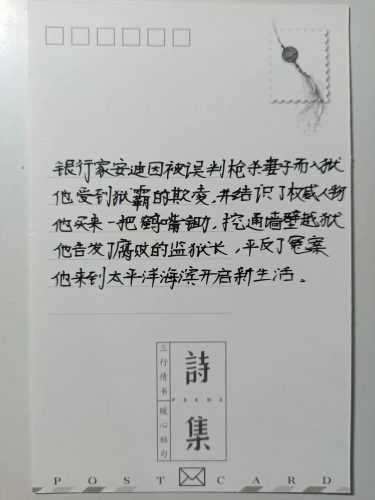 银行家安迪因被误判枪杀妻子而入狱
他受到狱霸的欺凌，并结识了权威人物
他买来一把鹤嘴锄，挖通墙壁越狱
他告发了腐败的监狱长，平反了冤案
他来到太平洋海滨开启新生活。
三行情书
暖心短句
詩
POEMS
集
POST CARD